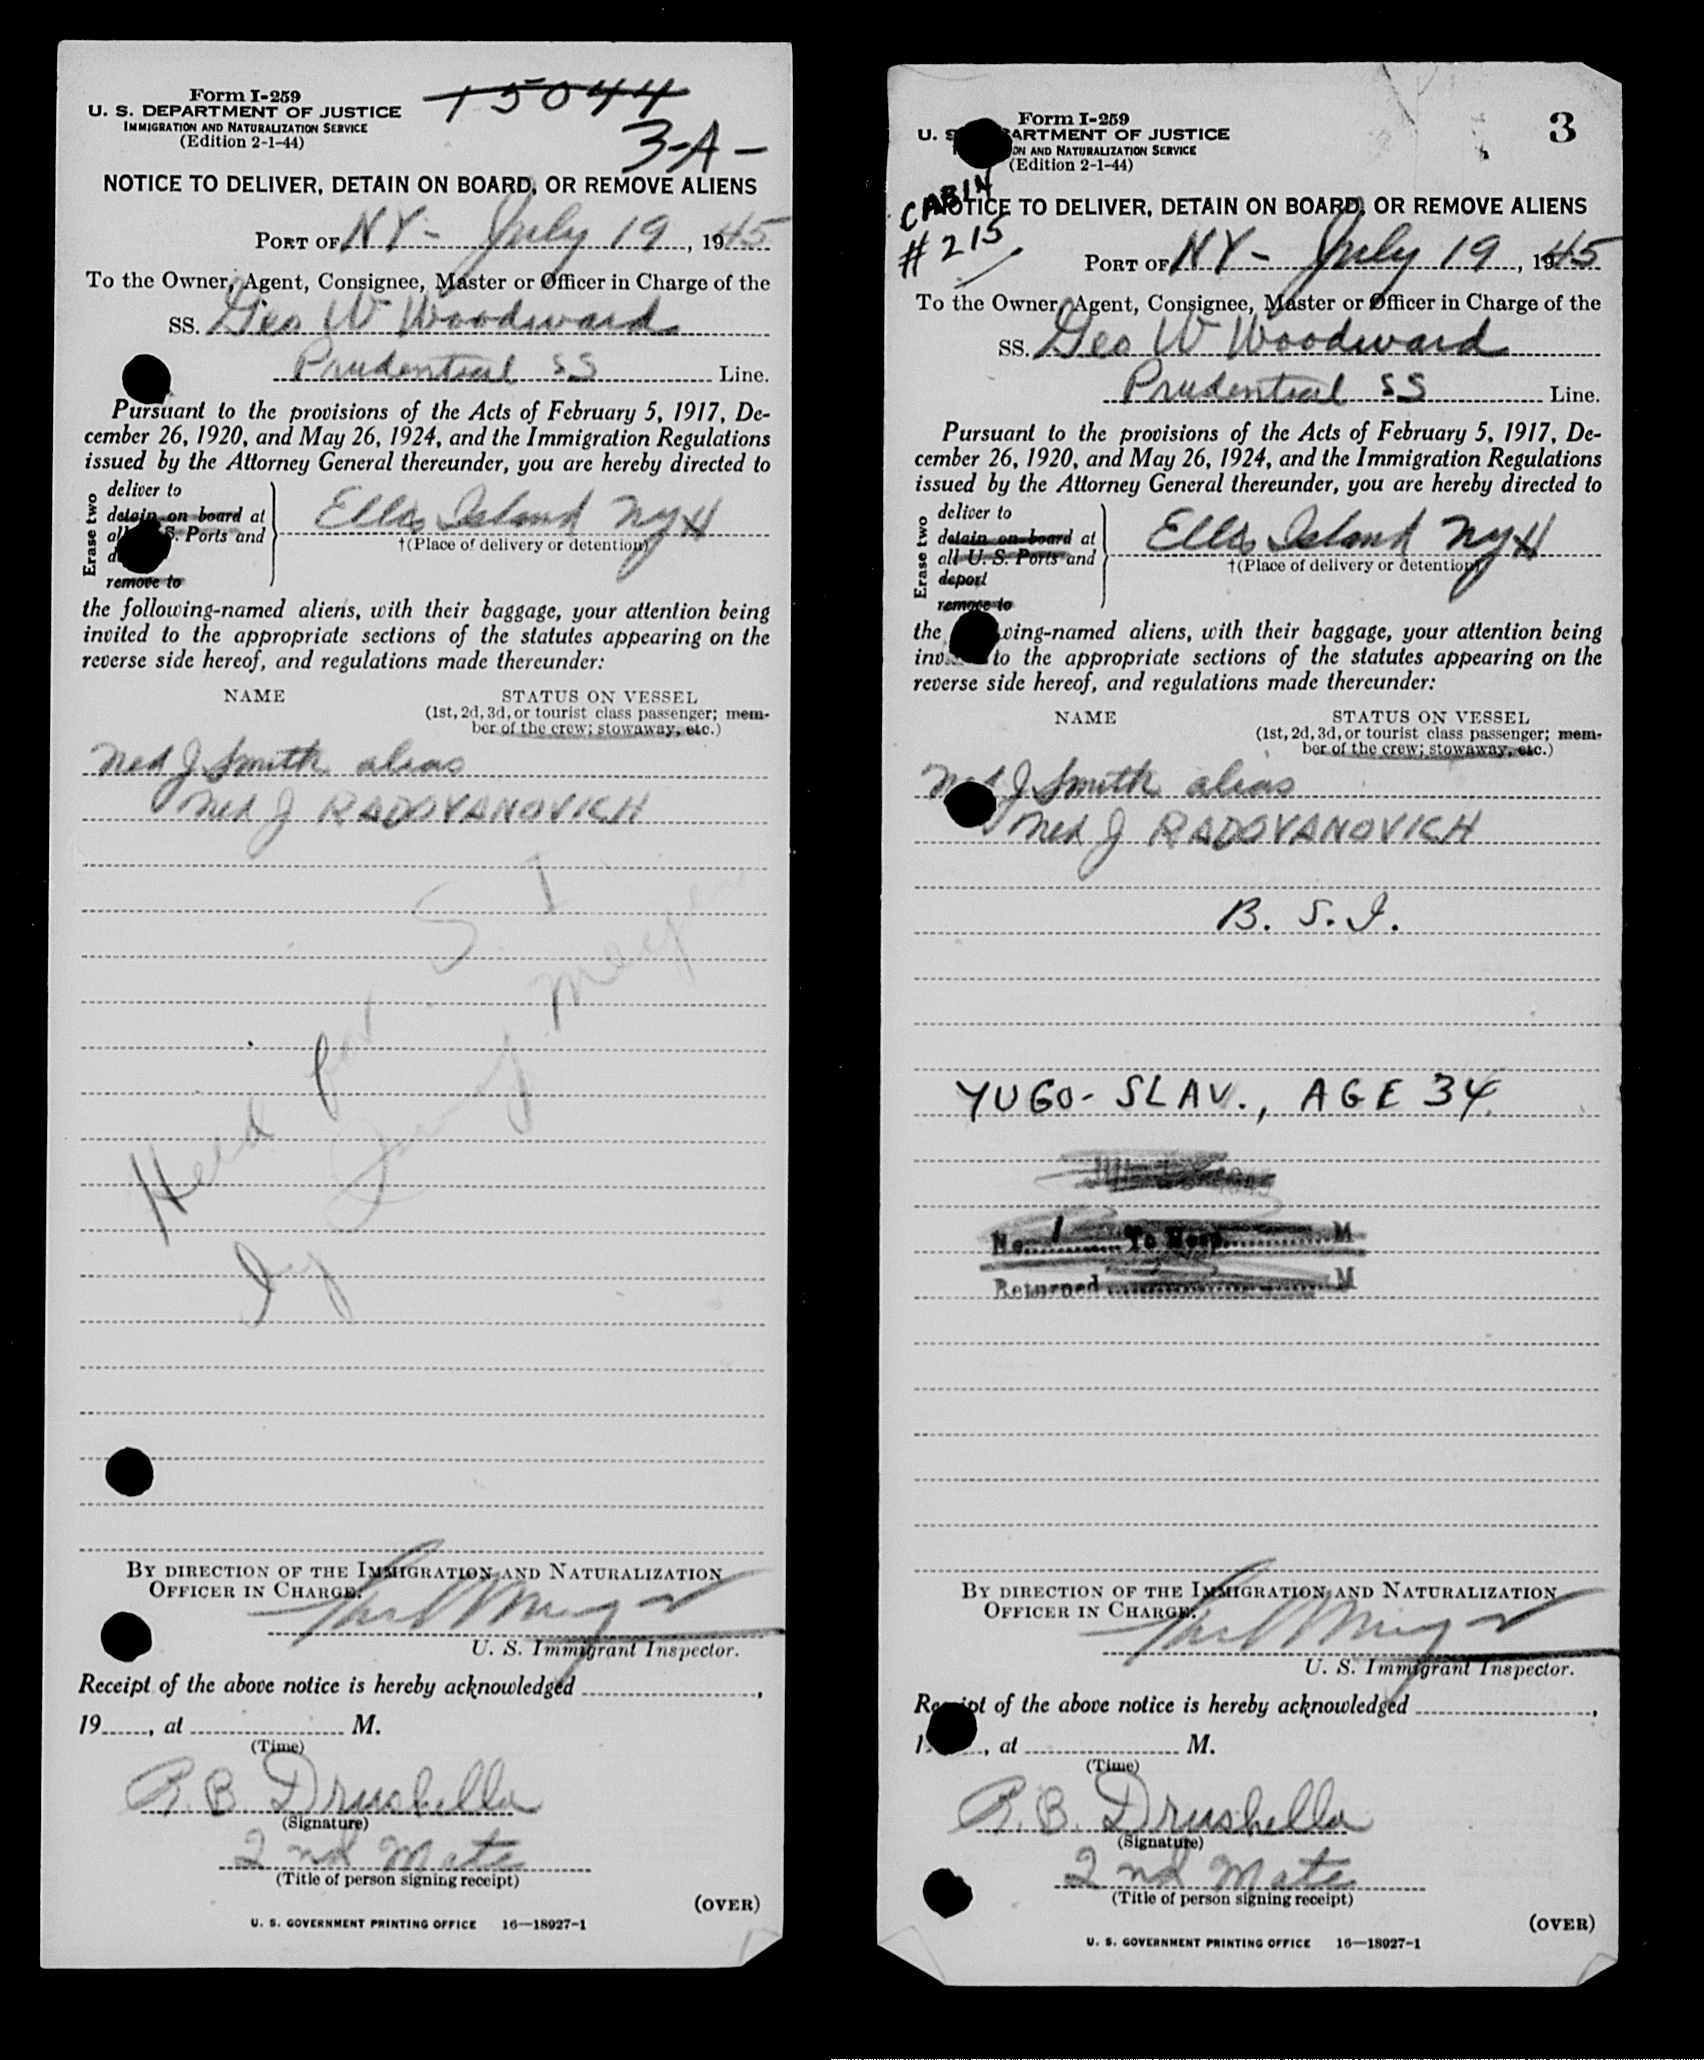 Form I-259
U. S. DEPARTMENT OF JUSTICE
IMMIGRATION AND NATURALIZATION SERVICE
(Edition 2-1-44)
15044
3-A-
NOTICE TO DELIVER, DETAIN ON BOARD, OR REMOVE ALIENS
PORT OF NY- July 19, 1945
To the Owner, Agent, Consignee, Master or Officer in Charge of the
SS. Geo W Woodward
Prudential SS Line.
Pursuant to the provisions of the Acts of February 5, 1917, De-
cember 26, 1920, and May 26, 1924, and the Immigration Regulations
issued by the Attorney General thereunder, you are hereby directed to
Erase two
deliver to
detain on board at
S. Ports and
remove to
Ellis Island NYH
†(Place of delivery or detention)
the following-named aliens, with their baggage, your attention being
invited to the appropriate sections of the statutes appearing on the
reverse side hereof, and regulations made thereunder:
NAME
STATUS ON VESSEL
(1st, 2d, 3d, or tourist class passenger; mem-
ber of the crew; stowaway, etc.)
Ned J Smith alias
Ned J RADOVANOVICH
Held for S I
by
BY DIRECTION OF THE IMMIGRATION AND NATURALIZATION
OFFICER IN CHARGE:
U. S. Immigrant Inspector.
Receipt of the above notice is hereby acknowledged ,
19 , at M.
(Time)
R. B. Drushella
(Signature)
2nd Mate
(Title of person signing receipt)
(OVER)
U. S. GOVERNMENT PRINTING OFFICE 16—18927-1
Form I-259
3
U. S. DEPARTMENT OF JUSTICE
ON AND NATURALIZATION SERVICE
(Edition 2-1-44)
CABIN
#215
NOTICE TO DELIVER, DETAIN ON BOARD, OR REMOVE ALIENS
PORT OF NY- July 19, 1945
To the Owner, Agent, Consignee, Master or Officer in Charge of the
SS. Geo W Woodward
Prudential SS Line.
Pursuant to the provisions of the Acts of February 5, 1917, De-
cember 26, 1920, and May 26, 1924, and the Immigration Regulations
issued by the Attorney General thereunder, you are hereby directed to
Erase two
deliver to
detain on board at
all U. S. Ports and
deport
remove to
Ellis Island NYH
†(Place of delivery or detention)
the wing-named aliens, with their baggage, your attention being
inv to the appropriate sections of the statutes appearing on the
reverse side hereof, and regulations made thereunder:
NAME
STATUS ON VESSEL
(1st, 2d, 3d, or tourist class passenger; mem-
ber of the crew; stowaway, etc.)
Ned J Smith alias
Ned J RADOVANOVICH
B. S. I.
YUGO-SLAV., AGE 34
No. 1 To Hosp. M
Returned M
BY DIRECTION OF THE IMMIGRATION AND NATURALIZATION
OFFICER IN CHARGE:
U. S. Immigrant Inspector.
Receipt of the above notice is hereby acknowledged ,
1 , at M.
(Time)
R. B. Drushella
(Signature)
2nd Mate
(Title of person signing receipt)
(OVER)
U. S. GOVERNMENT PRINTING OFFICE 16—18927-1